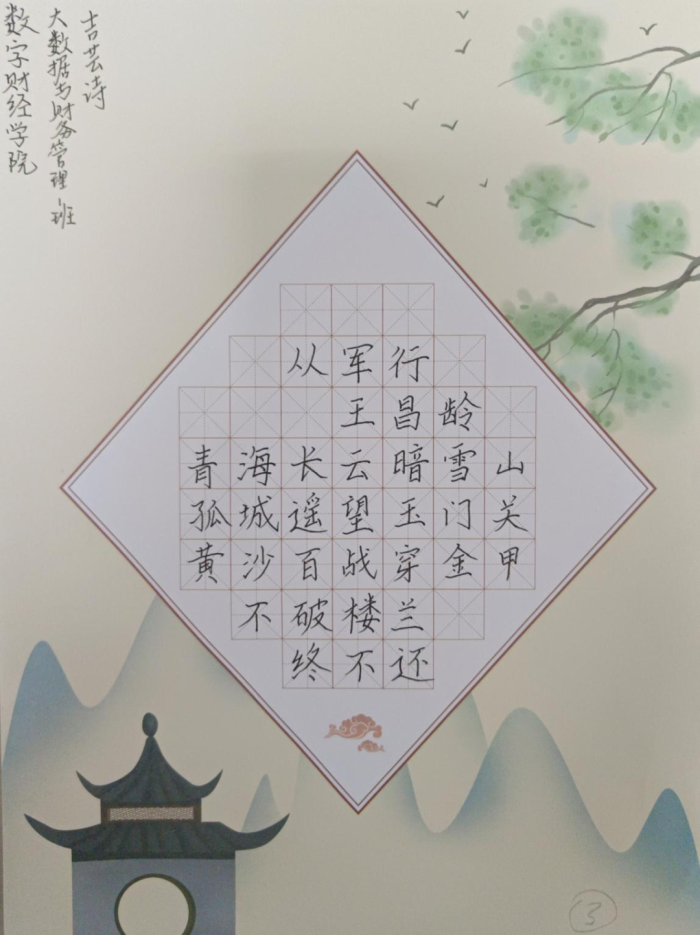 数字财经学院
大数据与财务管理1班
吉芸诗
从军行
王昌龄
青海长云暗雪山
孤城遥望玉门关
黄沙百战穿金甲
不破楼兰
终不还
3